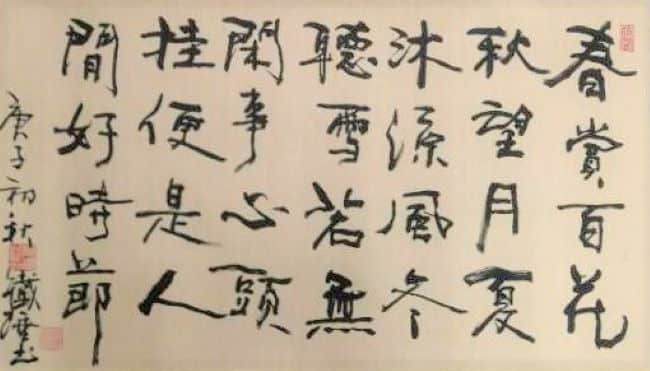 春賞百花
秋望月夏
沐涼風冬
聽雪若無
閑事心頭
挂便是人
間好時節
庚子初秋鐵